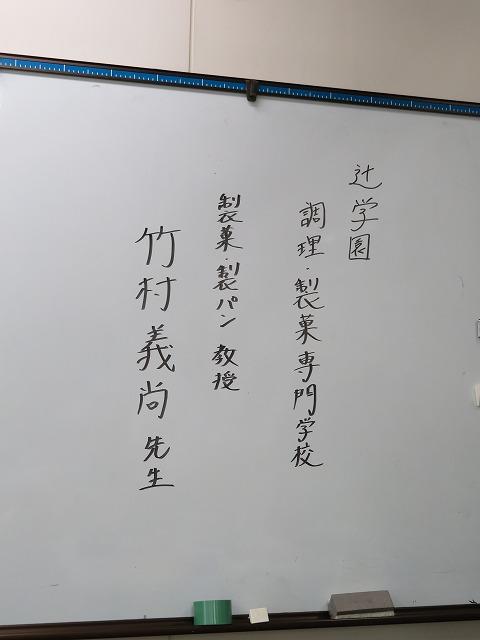 辻学園
調理・製菓専門学校
製菓・製パン 教授
竹村義尚先生